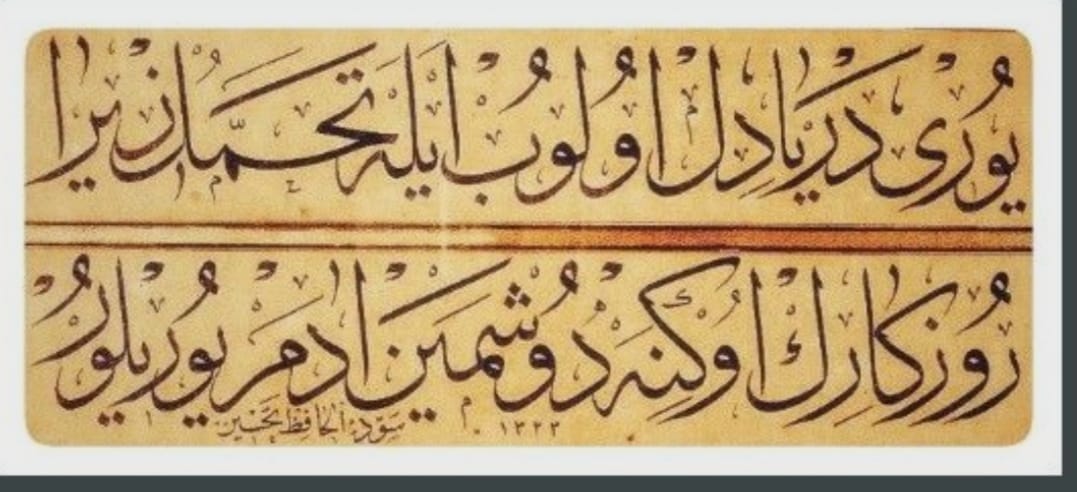 يورى دريا دل اولوب ايله تحمل زيرا
روزكارك اوكنه دوشمين ادم يوريلور
سوده الحافظ تحسين ١٣٢٣